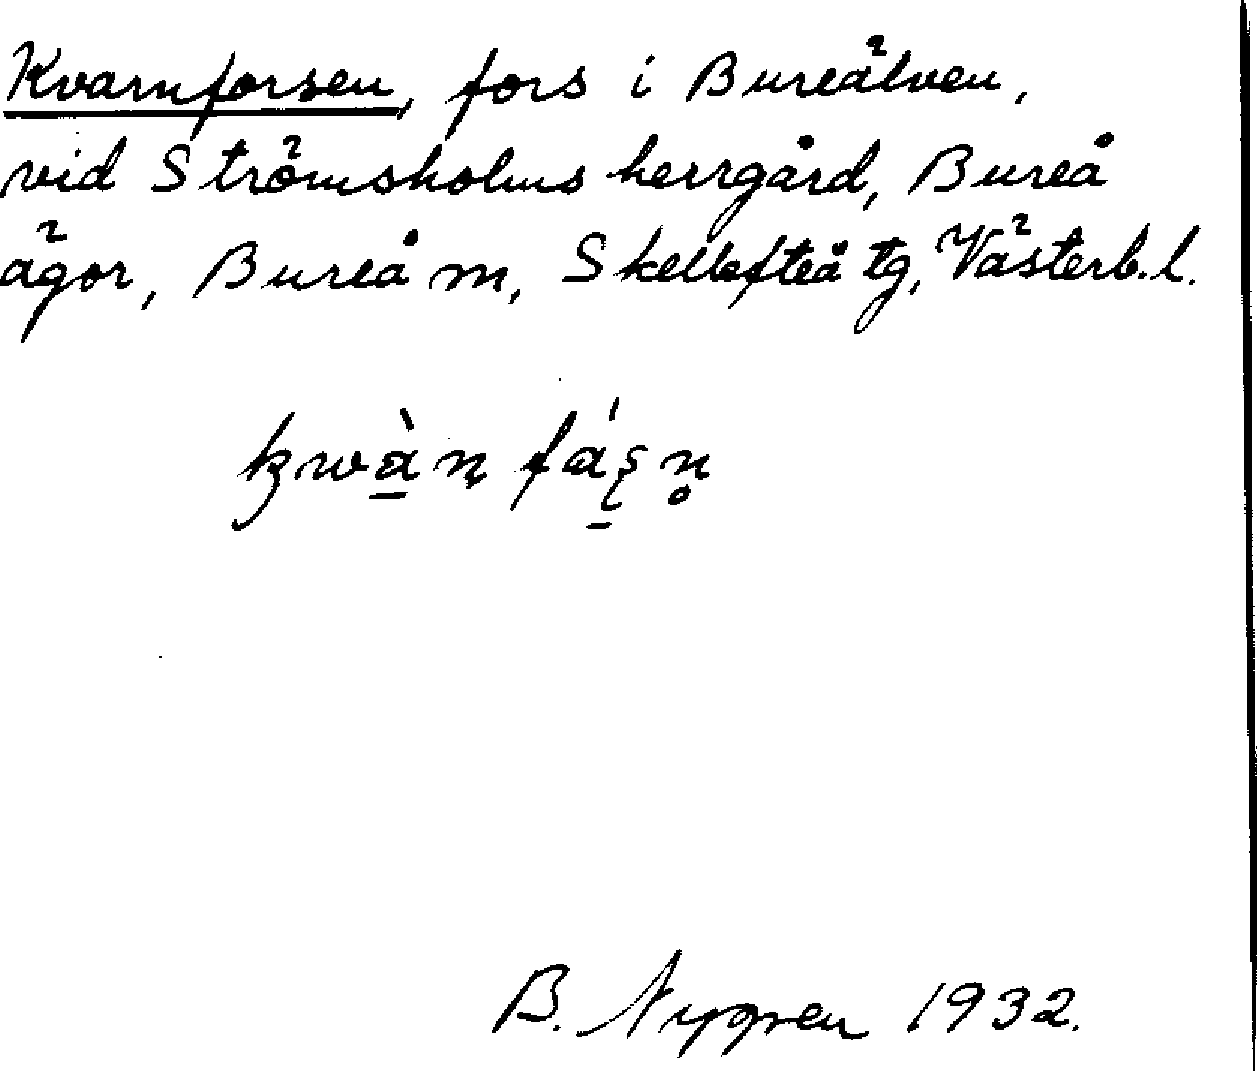 Kvarnforsen, fors i Bureälven,
vid Strömsholms herrgård, Bureå
ägor, Bureå m, Skellefteå tg, Västerb.l.
B. Nygren 1932.